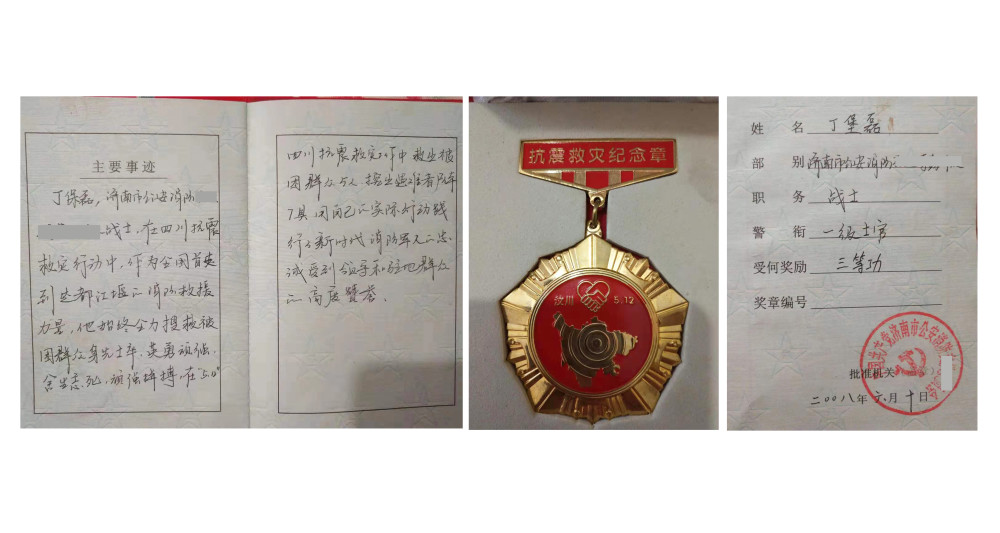 主要事迹
丁保磊，济南市公安消防
战士，在四川抗震
救灾行动中，作为全国首支
到达都江堰的消防救援
力量，他始终全力搜救被
困群众身先士卒、英勇顽强、
舍生忘死，顽强拼搏，在"5.12"
四川抗震救灾工作中救出被
困群众5人，挖出遇难者尸体
7具，用自己的实际行动践
行了新时代消防军人的忠
诚受到领导和驻地群众
的高度赞誉。
抗震救灾纪念章
汶川 5.12
姓 名 丁堡磊
部 别 济南市公安消防
职 务 战士
警 衔 一级士官
受何奖励 三等功
奖章编号
批准机关
二00八年六月十日